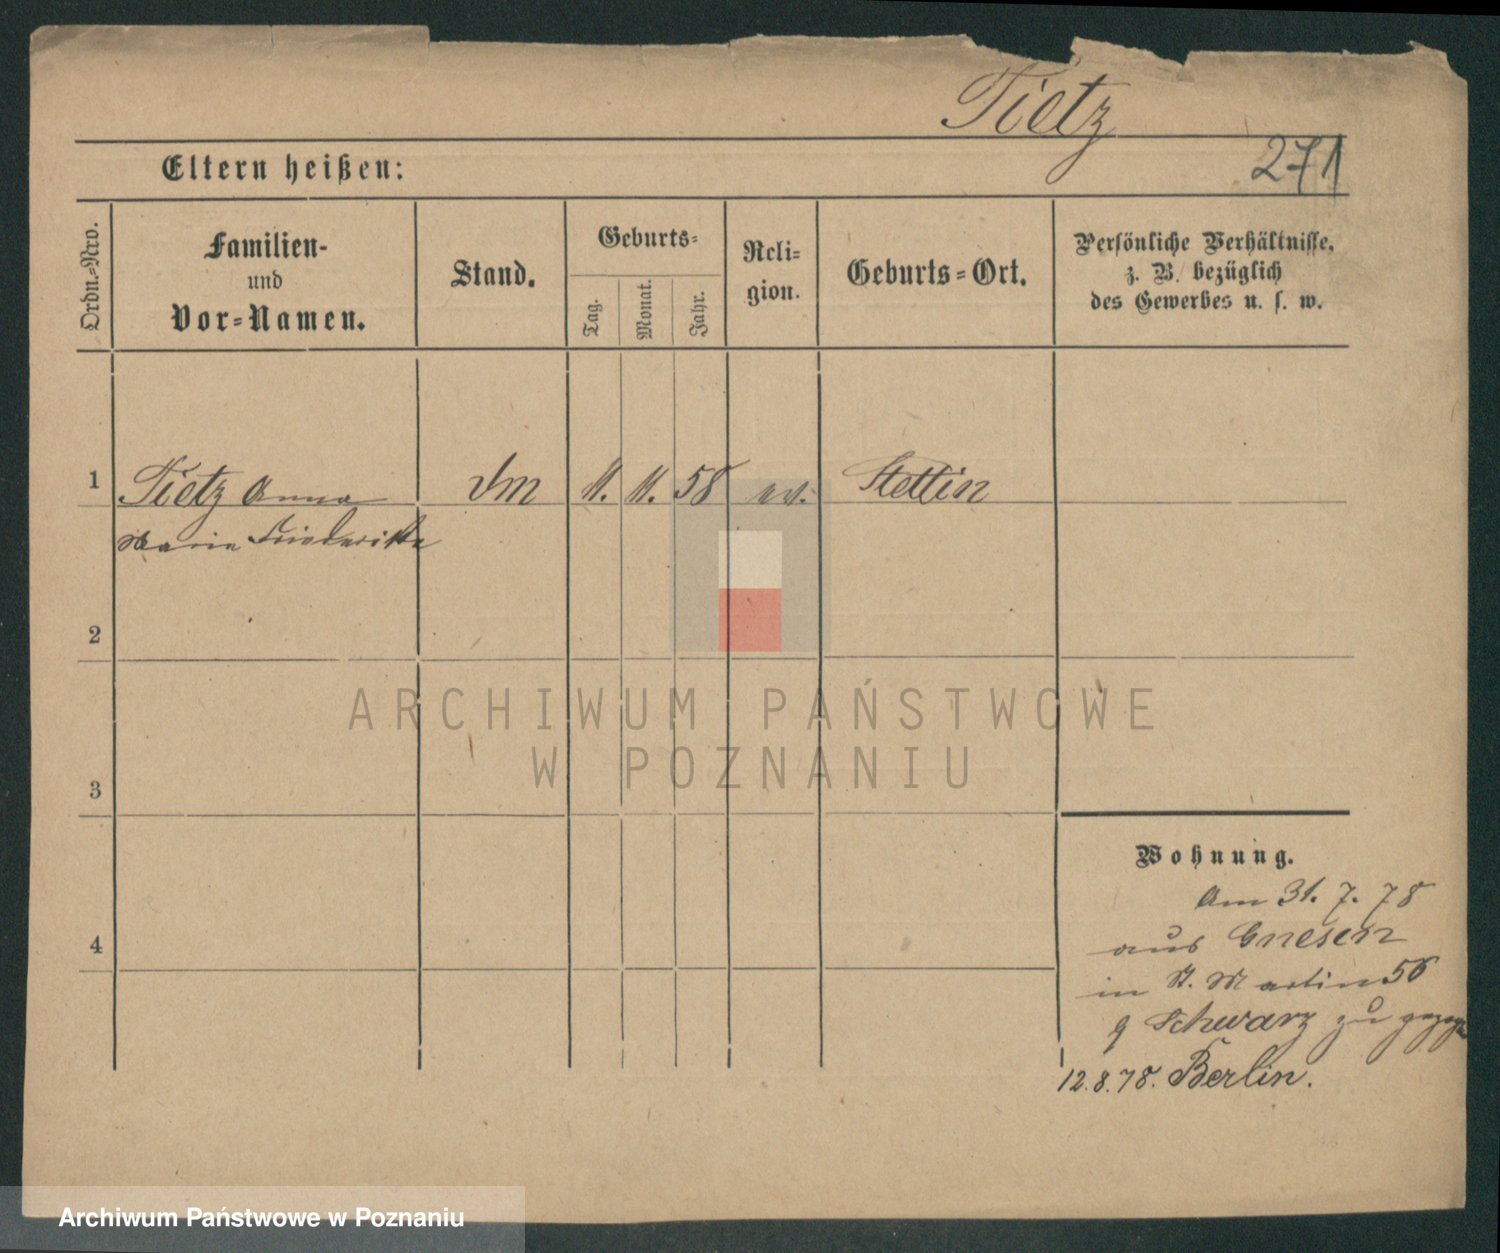 Tietz
271
Eltern heißen:
Ordn.-Nro.
Familien-
und
Vor-Namen.
Stand.
Geburts-
Tag.
Monat.
Jahr.
Reli-
gion.
Geburts-Ort.
Persönliche Verhältnisse,
z. B. bezüglich
des Gewerbes u. s. w.
1 Tietz Anna 11. 11. 58 ev. Stettin
Marie Friederike
2
ARCHIWUM PAŃSTWOWE
W POZNANIU
3
Wohnung.
Am 31. 7. 78
aus Gnesen
4
in St. Martin 56
Schwarz zu
12.8.78. Berlin.
Archiwum Państwowe w Poznaniu